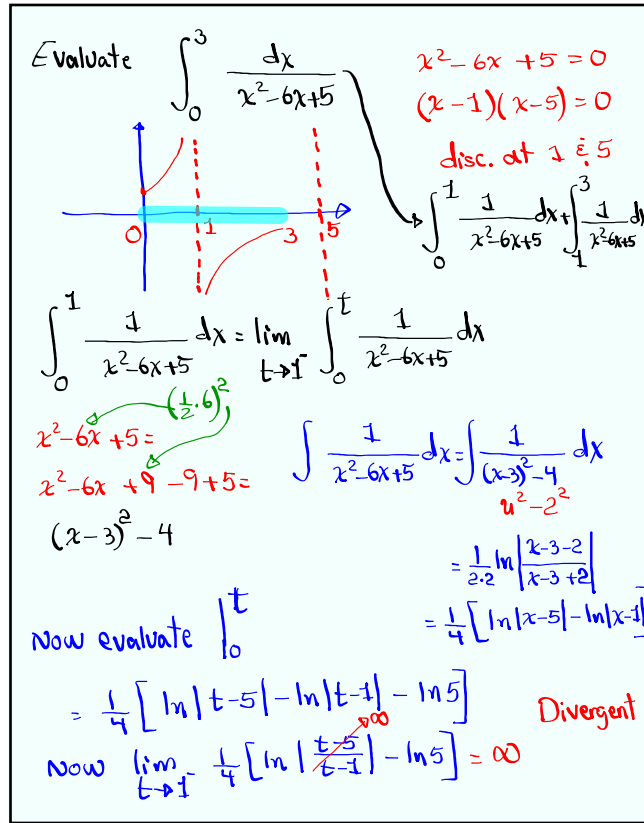 Evaluate ∫₀³ dx/(x²-6x+5)
x²-6x+5=0
(x-1)(x-5)=0
disc. at 1 & 5
∫₀¹ 1/(x²-6x+5) dx + ∫₁³ 1/(x²-6x+5) dx
0 1 3 5
∫₀¹ 1/(x²-6x+5) dx = lim t→1⁻ ∫₀ᵗ 1/(x²-6x+5) dx
(1/2·6)²
x²-6x+5=
x²-6x+9-9+5=
(x-3)²-4
∫ 1/(x²-6x+5) dx = ∫ 1/((x-3)²-4) dx
u²-2²
= 1/(2·2) ln|(x-3-2)/(x-3+2)|
= 1/4 [ln|x-5|-ln|x-1|]
Now evaluate |₀ᵗ
= 1/4 [ln|t-5|-ln|t-1|-ln5]
Divergent
Now lim t→1⁻ 1/4 [ln|(t-5)/(t-1)|-ln5] = ∞
∞